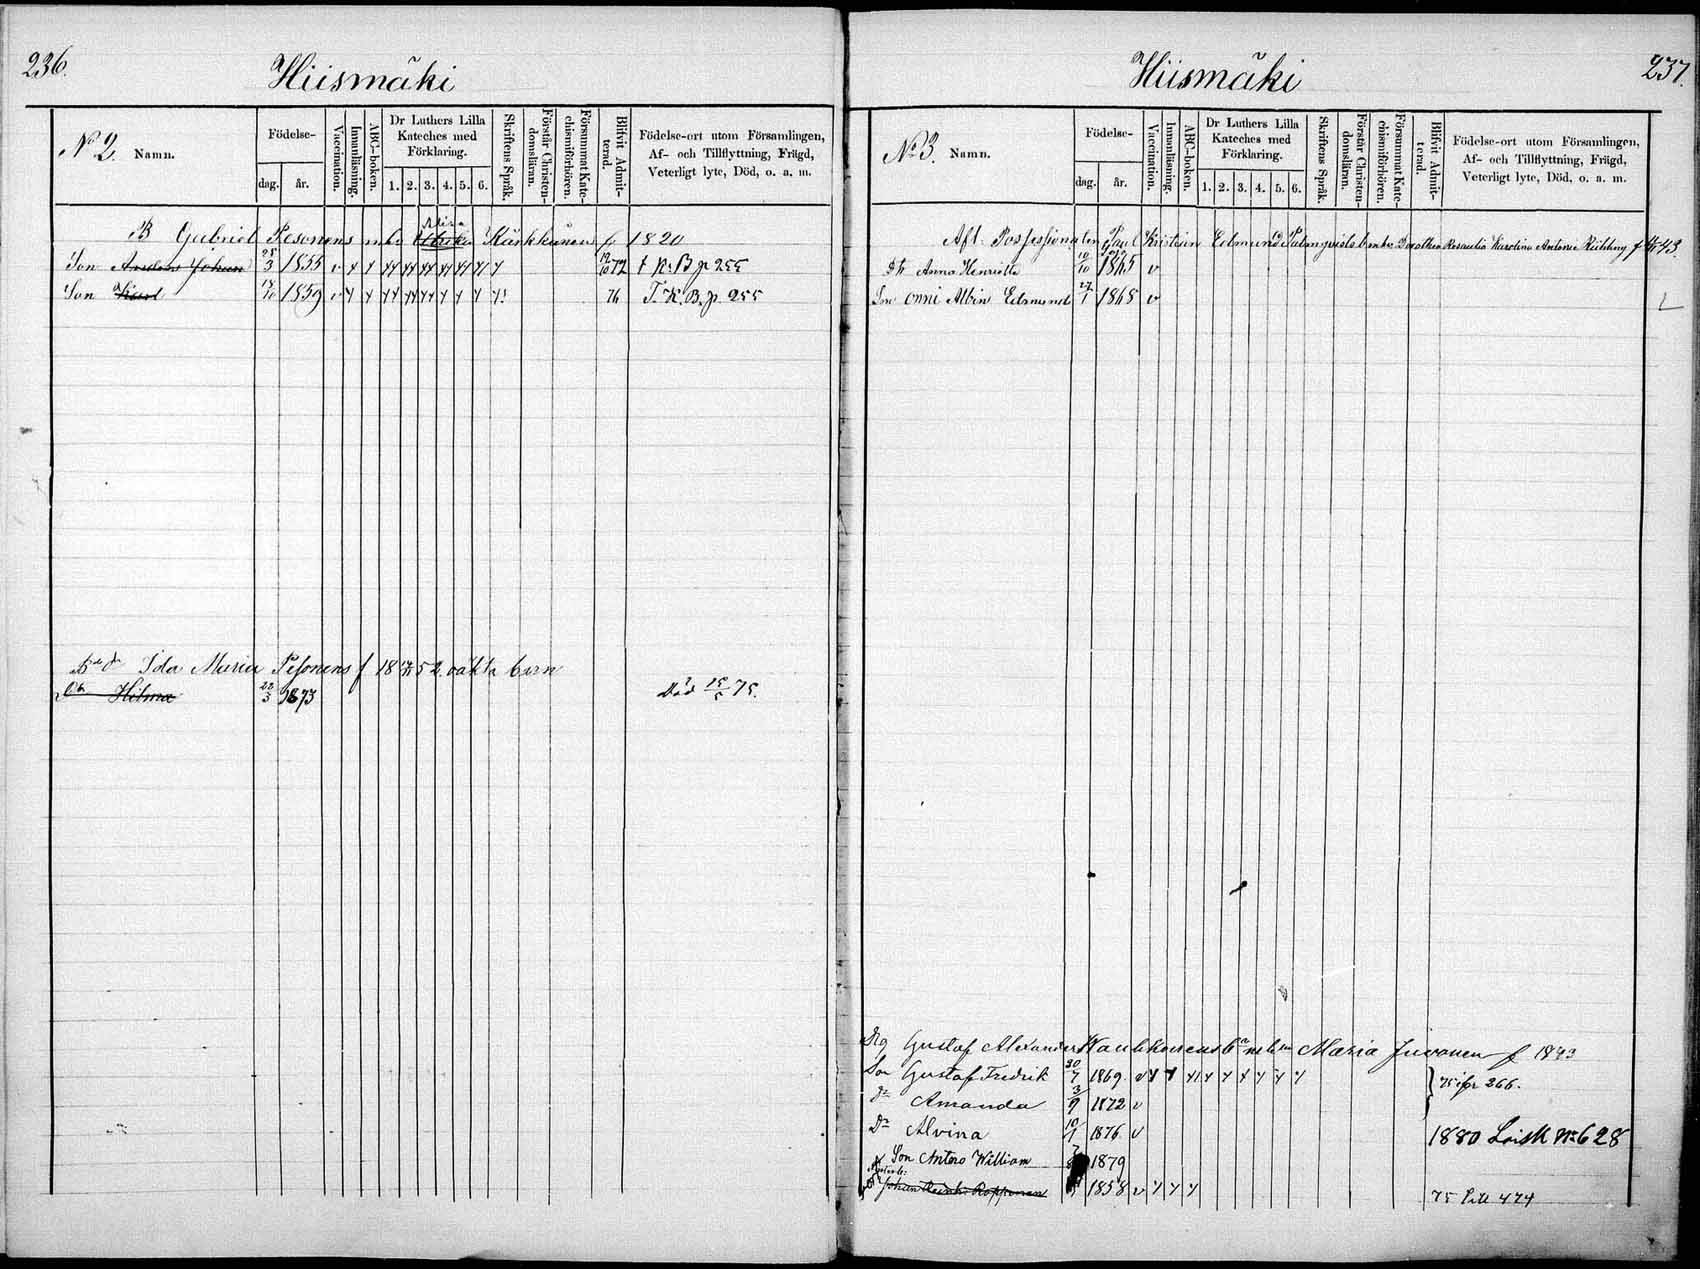 236.
Hiismäki
No 2. Namn.
Födelse-
dag. år.
Vaccination.
Innanläsning.
ABC-boken.
Dr Luthers Lilla Kateches med Förklaring.
1. 2. 3. 4. 5. 6.
Skriftens Språk.
Förstår Christendomsläran.
Försummat Katechismiförhören.
Blifvit Admitterad.
Födelse-ort utom Församlingen,
Af- och Tillflyttning, Frägd,
Veterligt lyte, Död, o. a. m.
B Gabriel Pesonens enka Ulrika Kärkkäinen f 1820
Son Anders Johan 25/3 1855 v 72 t K. B p 255
Son Karl 1859 v 76 T. K. B. p 255
Ida Maria Pesonens f 18 52 oäkta barn
Hilma 22/3 1873 Död 25/5 75.
237.
Hiismäki
No 3. Namn.
Födelse-
dag. år.
Vaccination.
Innanläsning.
ABC-boken.
Dr Luthers Lilla Kateches med Förklaring.
1. 2. 3. 4. 5. 6.
Skriftens Språk.
Förstår Christendomsläran.
Försummat Katechismiförhören.
Blifvit Admitterad.
Födelse-ort utom Församlingen,
Af- och Tillflyttning, Frägd,
Veterligt lyte, Död, o. a. m.
Afl. Possessionaten Paul Kristian Edmund Palmqvists enka Dorothea Rosaulia Karolina Antonia f 43.
Anna Henriette 10/10 1865 v
Son Onni Albin Edmund 27/1 1868 v
Gustaf Alexander Maria Juvonen f 1843
Son Gustaf Fredrik 30/7 1869 v 75 ifr 266.
Dr Amanda 3/9 1872 v
Dr Alvina 10/1 1876 v 1880 Loisk No 628
Son Antero William 1879
Johan Ropponen 1858 v 75 till 474